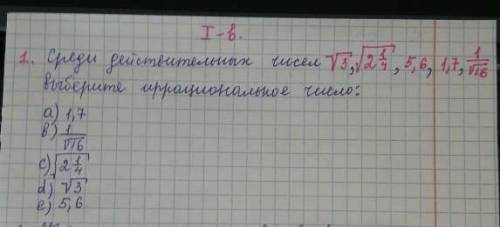 I-в.
1. Среди действительных чисел √3, √2 1/4, 5,6, 1,7, 1/√16
выберите иррациональное число:
a) 1,7
b) 1/√16
c) √2 1/4
d) √3
e) 5,6